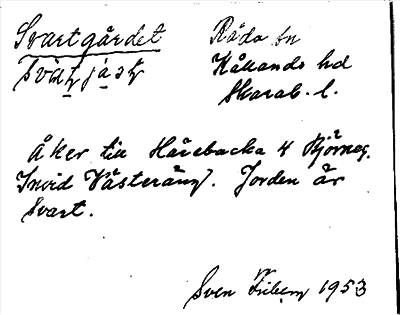 Svartgårdet
Råda sn
Kållands hd
Skarab. l.
Åker till Härebacka 4 Björneg.
Invid Västeräng. Jorden är
svart.
Sven 1953